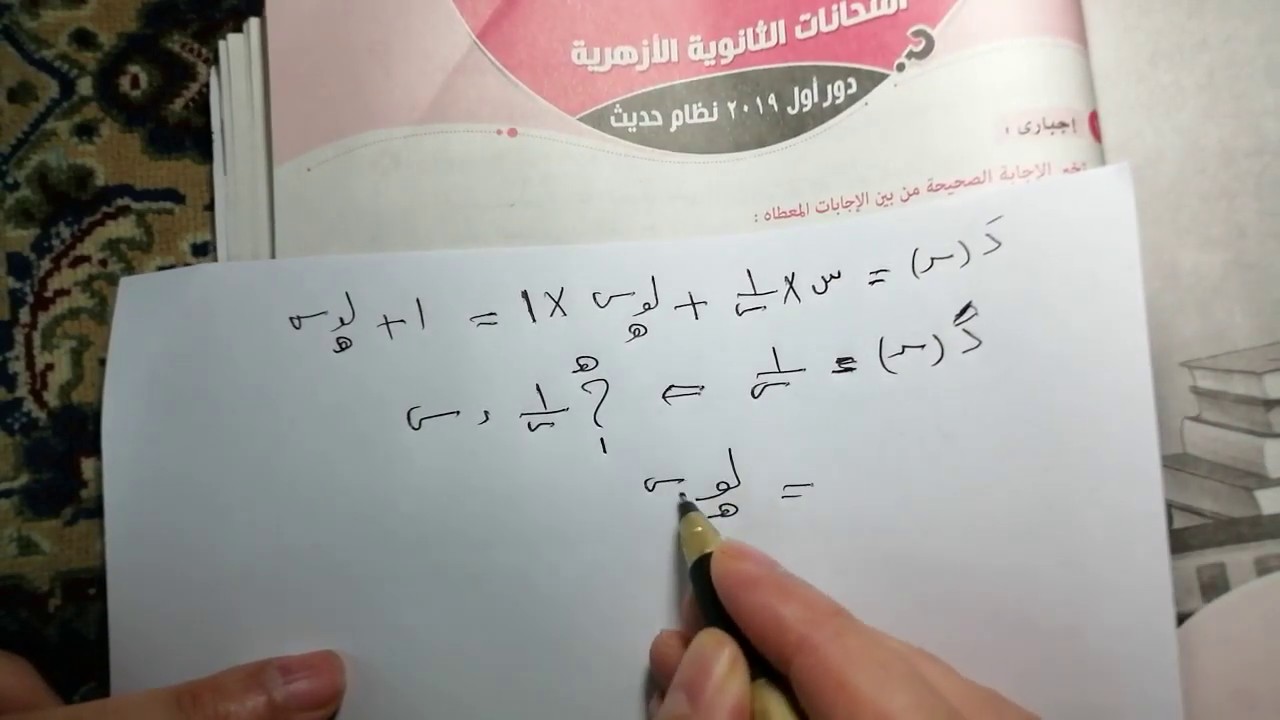 امتحانات الثانوية الأزهرية
دور أول ٢٠١٩ نظام حديث
إجبارى :
الإجابة الصحيحة من بين الإجابات المعطاه :
دَ (س) = س × ١/س + لو_هـ س × ١ = ١ + لو_هـ س
دً (س) = ١/س ⇐ ∫_١^هـ ١/س ء س
= لو_هـ س